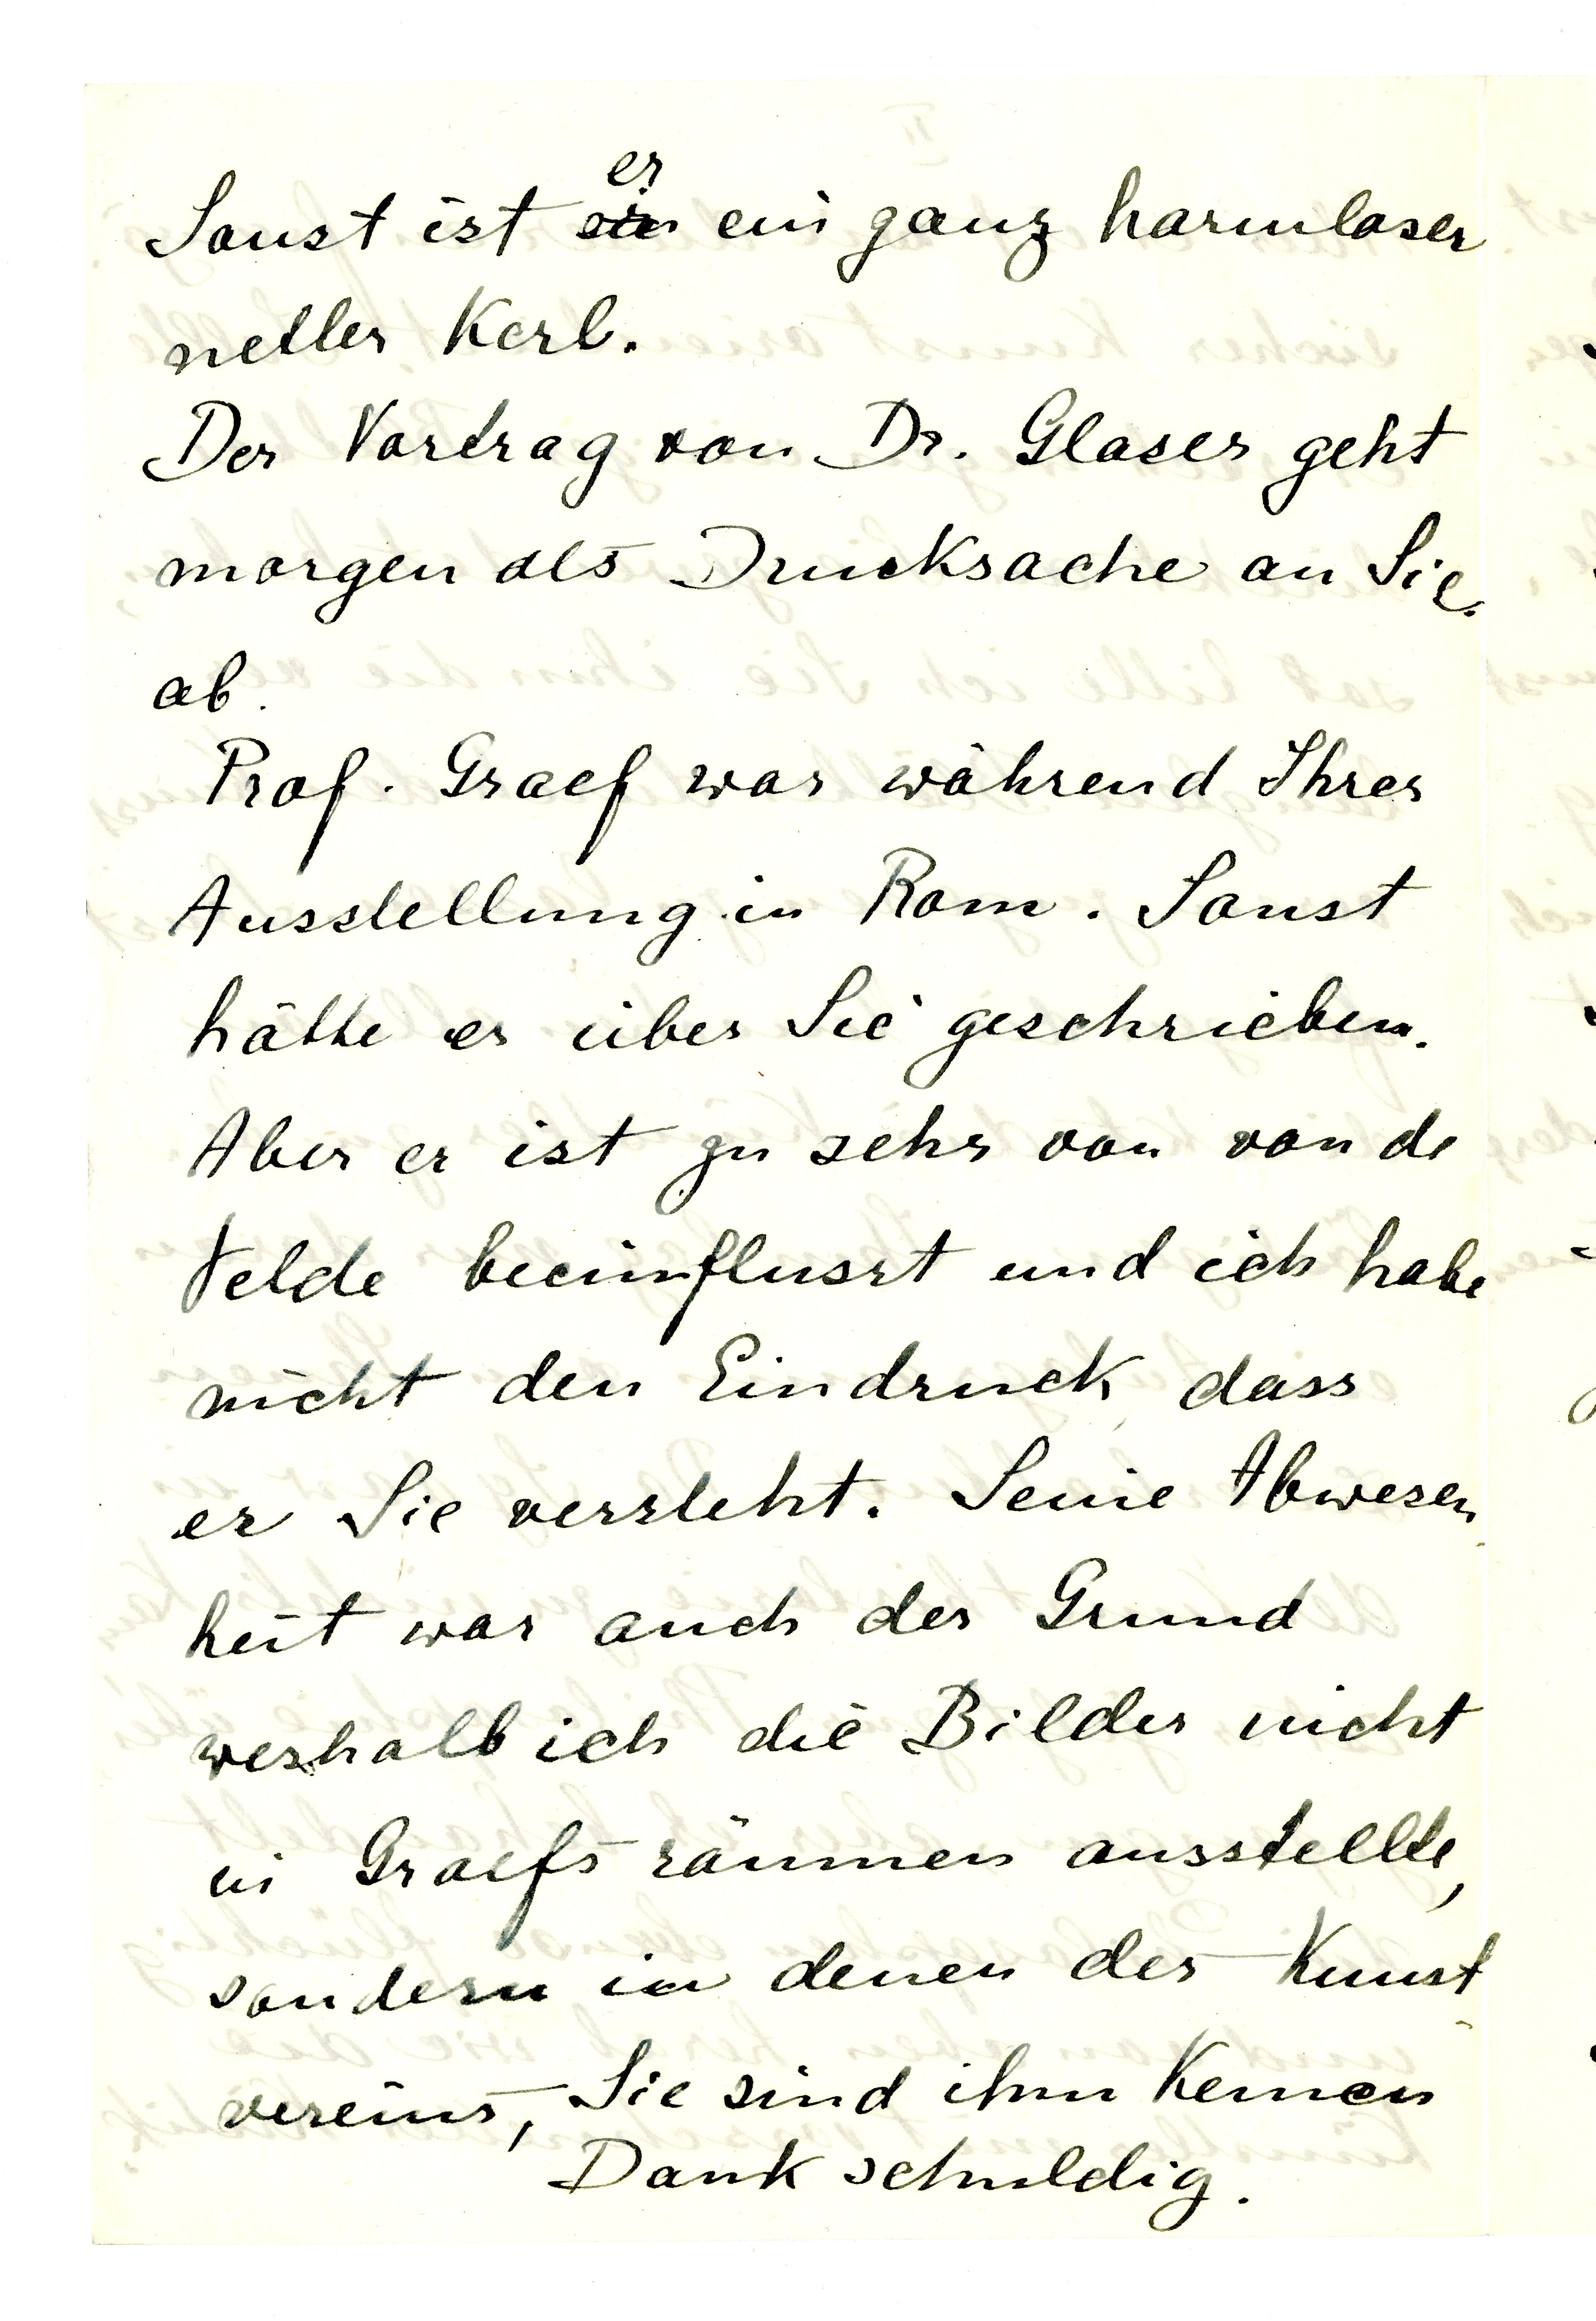 Sonst ist er ein ganz harmloser
netter Kerl.
Der Vortrag von Dr. Glaser geht
morgen als Drucksache an Sie
ab.
Prof. Graef war während Ihrer
Ausstellung in Rom. Sonst
hätte er über Sie geschrieben.
Aber er ist zu sehr von van de
Velde beeinflusst und ich habe
nicht den Eindruck dass
er Sie versteht. Seine Abwesen
heit war auch der Grund
weshalb ich die Bilder nicht
in Graefs räumen ausstellte,
sondern in denen des Kunst
vereins, Sie sind ihm Keinen
Dank schuldig.